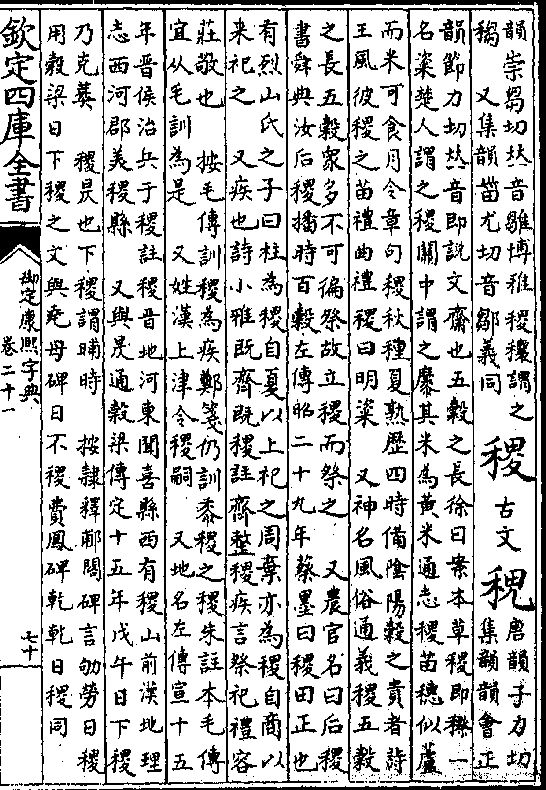 韻崇芻切𠀤音雛博雅稷穰謂之
又集韻甾尤切音鄒義同
稷 古文
唐韻子力切
集韻韻會正
韻節力切𠀤音即說文齋也五穀之長徐曰案本草稷即穄一
名粢楚人謂之稷關中謂之穈其米為黃米通志稷苗穗似蘆
而米可食月令章句稷秋種夏熟歷四時備陰陽穀之貴者詩
王風彼稷之苗禮曲禮稷曰明粢 又神名風俗通義稷五穀
之長五穀衆多不可徧祭故立稷而祭之 又農官名曰后稷
書舜典汝后稷播時百穀左傳昭二十九年蔡墨曰稷田正也
有烈山氏之子曰柱為稷自夏以上祀之周棄亦為稷自商以
来祀之 又疾也詩小雅既齊既稷註齊整稷疾言祭祀禮容
莊敬也 按毛傳訓稷為疾鄭箋仍訓黍稷之稷朱註本毛傳
宜从毛訓為是 又姓漢上津令稷嗣 又地名左傳宣十五
年晉侯治兵于稷註稷晉地河東聞喜縣西有稷山前漢地理
志西河郡美稷縣 又與昃通穀梁傳定十五年戊午日下稷
乃克葬 稷昃也下稷謂晡時 按隸釋郙閣碑言劬勞日稷
用穀梁日下稷之文與堯母碑日不稷費鳳碑乾乾日稷同
欽定四庫全書
御定康熙字典
卷二十一
七十